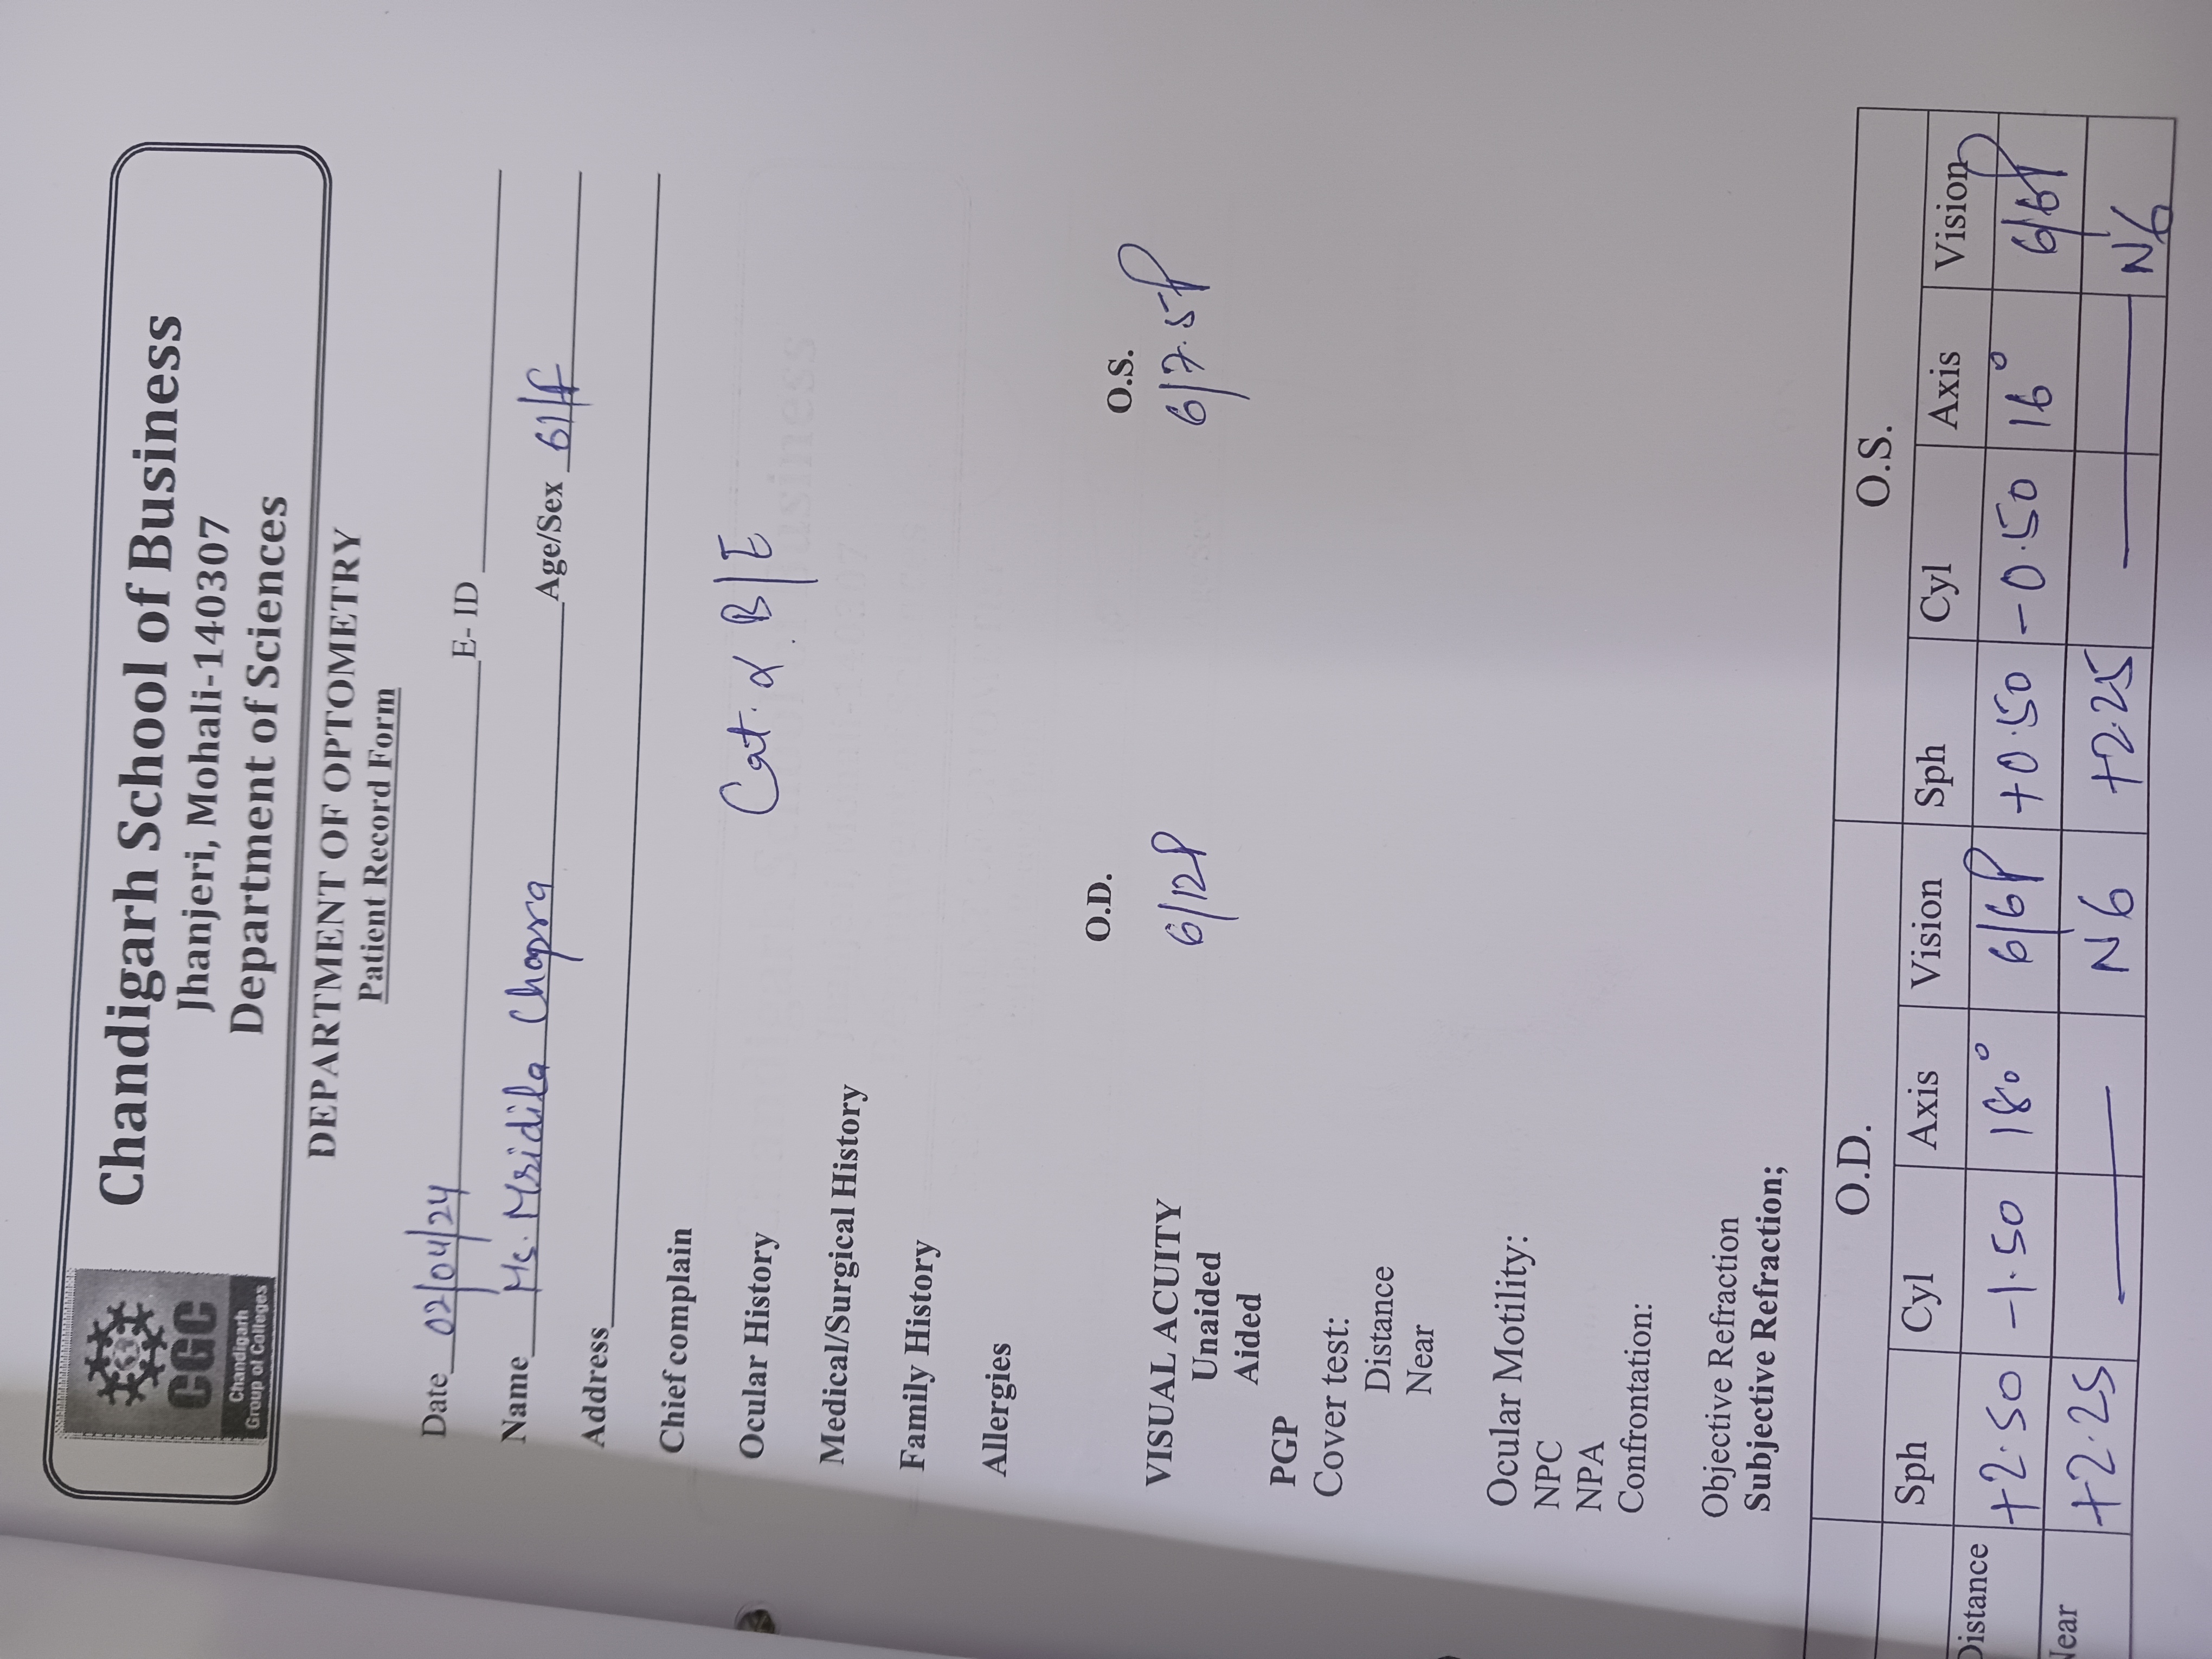 CGC
Chandigarh
Group of Colleges
Chandigarh School of Business
Jhanjeri, Mohali-140307
Department of Sciences
DEPARTMENT OF OPTOMETRY
Patient Record Form
Date 02/04/24 E- ID
Name Ms. Mridila Chopra Age/Sex 61/F
Address
Chief complain
Ocular History Cat. α B/E
Medical/Surgical History
Family History
Allergies
O.D. O.S.
VISUAL ACUITY 6/12P 6/7.5P
Unaided
Aided
PGP
Cover test:
Distance
Near
Ocular Motility:
NPC
NPA
Confrontation:
Objective Refraction
Subjective Refraction;
O.D. O.S.
Sph Cyl Axis Vision Sph Cyl Axis Vision
Distance +2.50 -1.50 180° 6/6P +0.50 -0.50 16° 6/6P
Near +2.25 — N6 +2.25 — N6